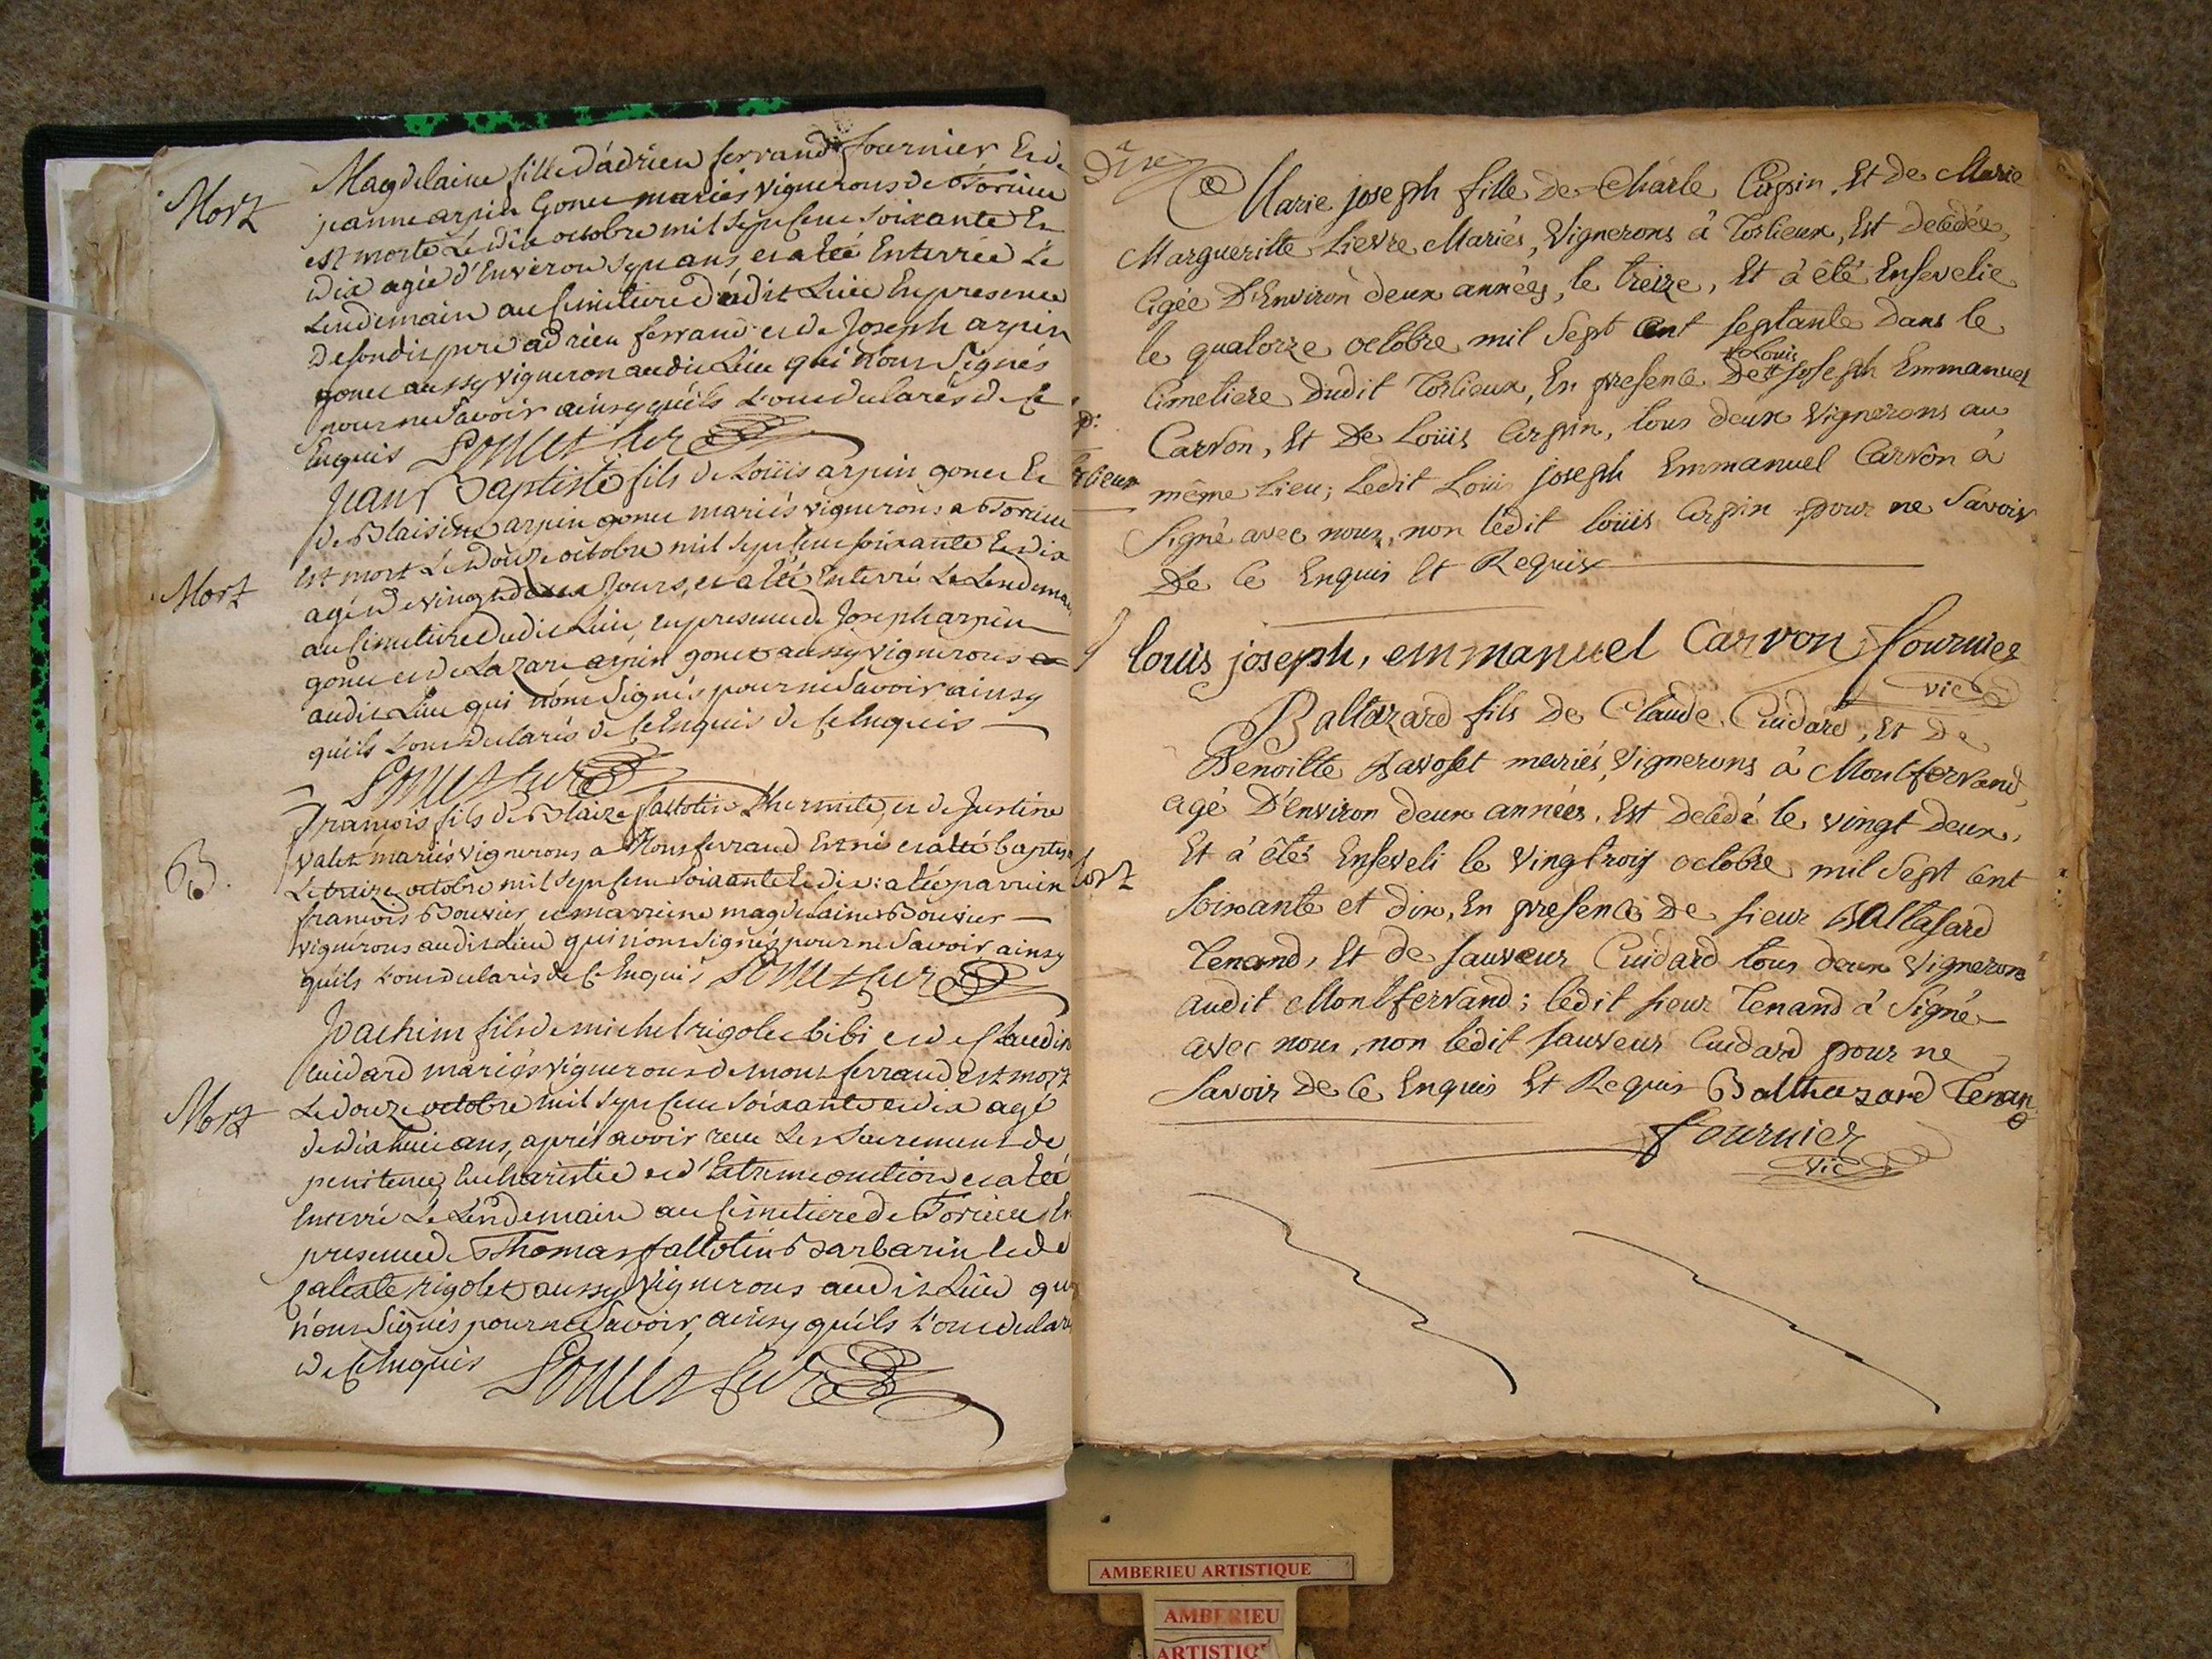 Mort
Magdelaine fille d'adrien ferrand fournier Et de
jeanne arpin Gonet mariés vignerons de Torcieu
est morte Le dix octobre mil sept cent soixante Et
dix agée d'Environ sept ans et a été Enterrée Le
Lendemain au Cimetiere dudit Lieu En presence
de sondit pere adrien ferrand et de Joseph arpin
gonet aussy vigneron audit Lieu qui n'ont Signés
pour ne Savoir ainsy quils L'ont declarés de Ce
Enquis
Mort
Jean Baptiste fils de Loüis arpin gonet Et
de Blaisine arpin gonet mariés vignerons a Torcieu
Est mort Le douze octobre mil sept cent soixante Et dix
agé de vingt deux Jours, et a été Enterré Le Lendemain
au Cimetiere dudit Lieu en presence de Joseph arpin
gonet et de Lazare arpin gonet aussy vignerons
audit Lieu qui n'ont Signés pour ne Savoir ainsy
quils L'ont declarés de Ce Enquis de Ce Enquis
B.
françois fils de Blaize fallotin L'hermite, et de Justine
valet mariés vignerons a Montferrand Est né et a été baptisé
Le treize octobre mil sept cent soixante Et dix: a été parrein
françois Bouvier et marreine magdelaine Bouvier
vignerons audit Lieu qui n'ont signés pour ne Savoir ainsy
quils L'ont declarés de Ce Enquis
Mort
Joachim fils de michel rigolet bibi et de Claudine
Cuidard mariés vignerons de montferrand est mort
Le douze octobre mil sept cent soixante et dix agé
de dix huit ans, aprés avoir receu Les Sacrements de
penitence, Eucharistie et d'Extremeonction et a été
Enterré Le Lendemain au Cimetiere de Torcieu En
presence de Thomas fallotin Barbarin Et de
Calixte rigolet aussy vignerons audit Lieu qui
n'ont Signés pour ne Savoir, ainsy quils L'ont declarés
de Ce Enquis
Marie joseph fille de Charle Arpin, Et de Marie
Margueritte Lievre Mariés, Vignerons à Torcieux, Est decédée,
Agée D'Environ deux années, le treize, Et à été Ensevelie
le quatorze octobre mil Sept Cent septante Dans le
Cimetiere Dudit Torcieux, En presence De Louis joseph Emmanuel
Carvon, Et De Loüis Arpin, tous deux Vignerons au
même Lieu; Ledit Louis joseph Emmanuel Carvon à
Signé avec nous, non ledit loüis Arpin pour ne Savoir
De Ce Enquis Et Requis
louis joseph, emmanuel Carvon fournier
vic
Mort
Baltazard fils De Claude Cuidard, Et De
Benoitte Savoset mariés, Vignerons à Montferrand,
agé D'Environ deux années, Est decédé le vingt deux,
Et à été Enseveli le vingt trois octobre mil Sept Cent
soixante et dix, En presence De sieur Baltasard
Tenand, Et de sauveur Cuidard tous deux Vignerons
audit Montferrand; ledit sieur Tenand à Signé
avec nous, non ledit sauveur Cuidard pour ne
Savoir De Ce Enquis Et Requis Balthazard Tenand
fournier
vic
AMBERIEU ARTISTIQUE
AMBERIEU